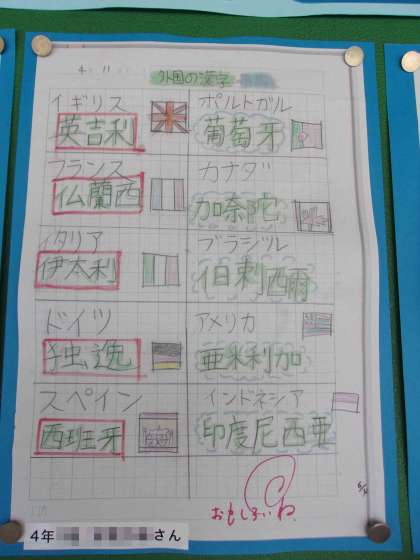 4.11
外国の漢字
イギリス
英吉利
フランス
仏蘭西
イタリア
伊太利
ドイツ
独逸
スペイン
西班牙
ポルトガル
葡萄牙
カナダ
加奈陀
ブラジル
伯剌西爾
アメリカ
亜米利加
インドネシア
印度尼西亜
おもしろいね。
4年 さん